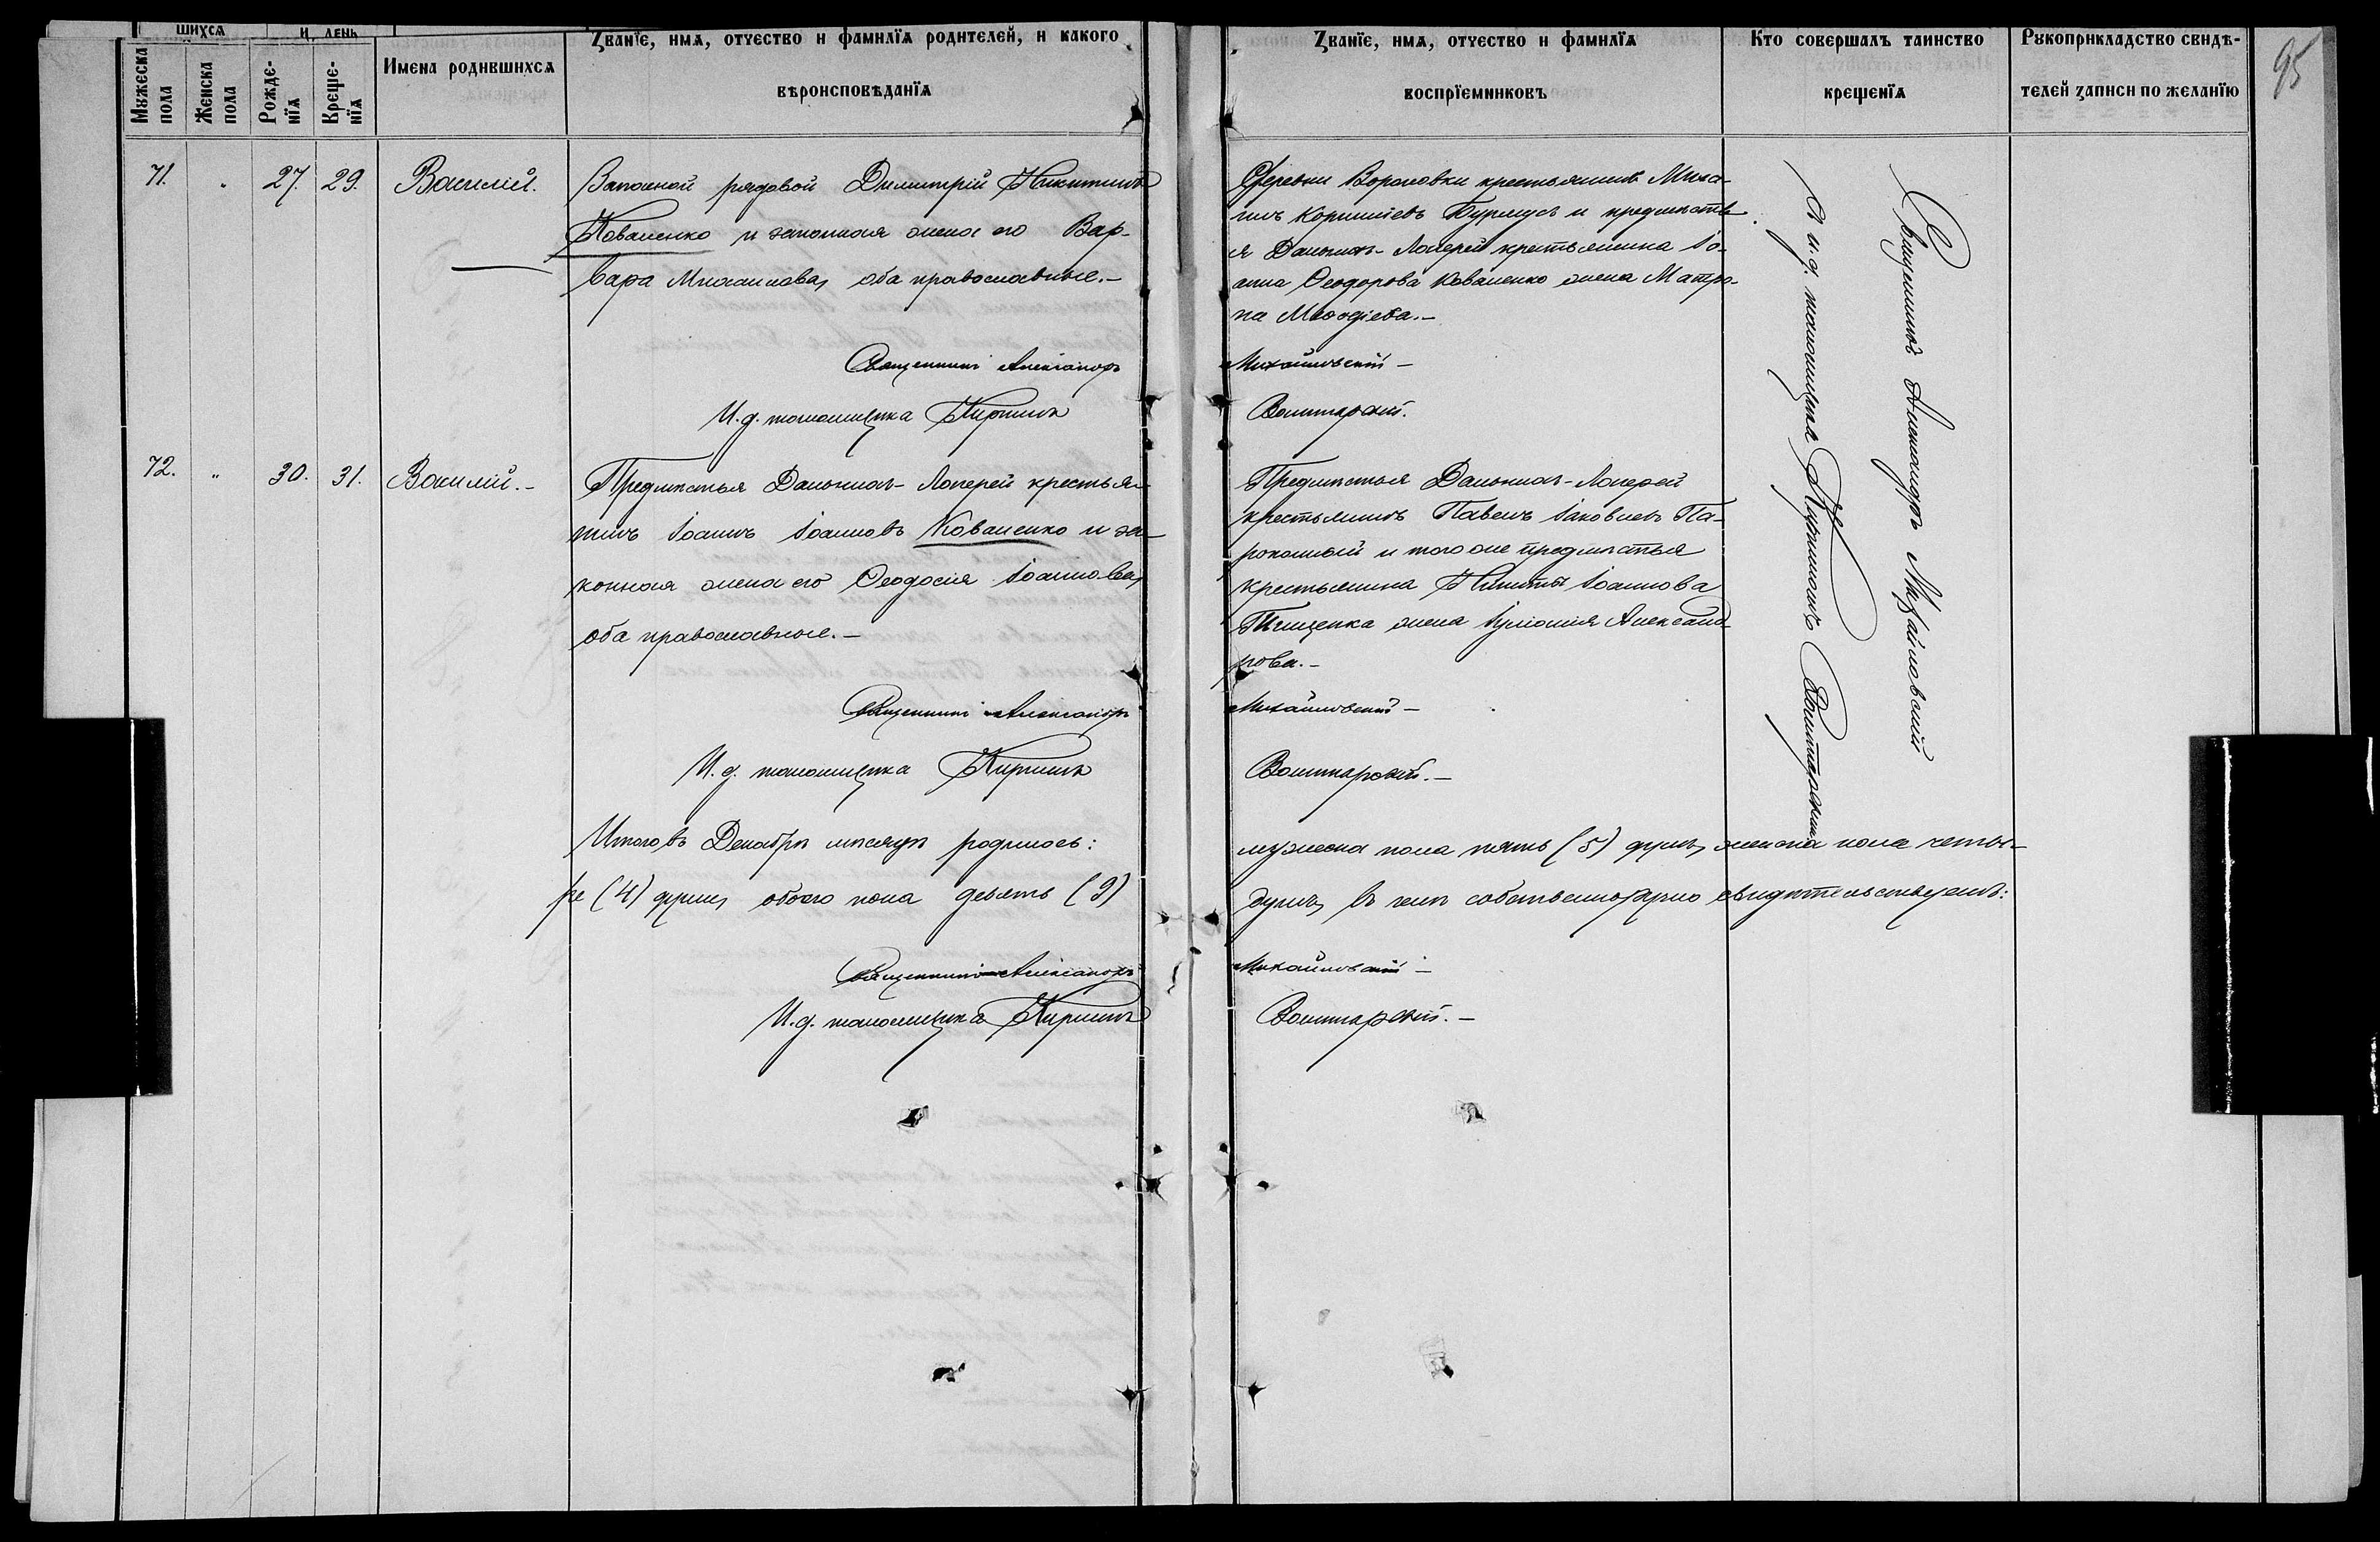 шихсѧ
и день
Мужеска пола
Женска пола
Рожде-нїѧ
Креще-нїѧ
Имена родившихсѧ
Званїе, имѧ, отчество и фамилїѧ родителей, и какого
вѣроисповѣданїѧ
Званїе, имѧ, отчество и фамилїѧ
воспрїемниковъ
Кто совершалъ таинство
крещенїѧ
Рукоприкладство свидѣ-
телей записи по желанїю
95
71. " 27. 29. Василій.
Запасной рядовой Димитрій Никитинъ
Коваленко и законная жена его Вар-
вара Михаилова, оба православные.-
Священникъ Александръ
И.д. псаломщика Кириллъ
Деревни Вороновки крестьянинъ Миха-
илъ Корниліевъ Бурлусъ и предмѣстъ
я Дальнихъ-Лагерей крестьянина Іо-
анна Ѳеодорова Коваленко жена Матро-
на Меѳодіева.-
Михайловскій -
Волитарскій.
72. " 30. 31. Василій.-
Предмѣстья Дальнихъ-Лагерей крестья-
нинъ Іоаннъ Іоанновъ Коваленко и за-
конная жена его Ѳеодосія Іоаннова,
оба православные.-
Священникъ Александръ
И.д. псаломщика Кириллъ
Предмѣстья Дальнихъ-Лагерей
крестьянинъ Павелъ Іаковлевъ Па-
и того же предмѣстья
крестьянина Никиты Іоаннова
жена Іуліанія Александ-
рова.-
Михайловскій -
Волитарскій.-
Священникъ Александръ Михайловскій
и и.д. псаломщика Кириллъ Волитарскій
Итого въ Декабрѣ мѣсяцѣ родилось:
мужеска пола пять (5) душъ, женска пола четы-
ре (4) души, обоего пола девять (9)
душъ, въ чемъ собственноручно свидѣтельствуемъ:
Священникъ Александръ
Михайловскій -
И.д. псаломщика Кириллъ
Волитарскій.-